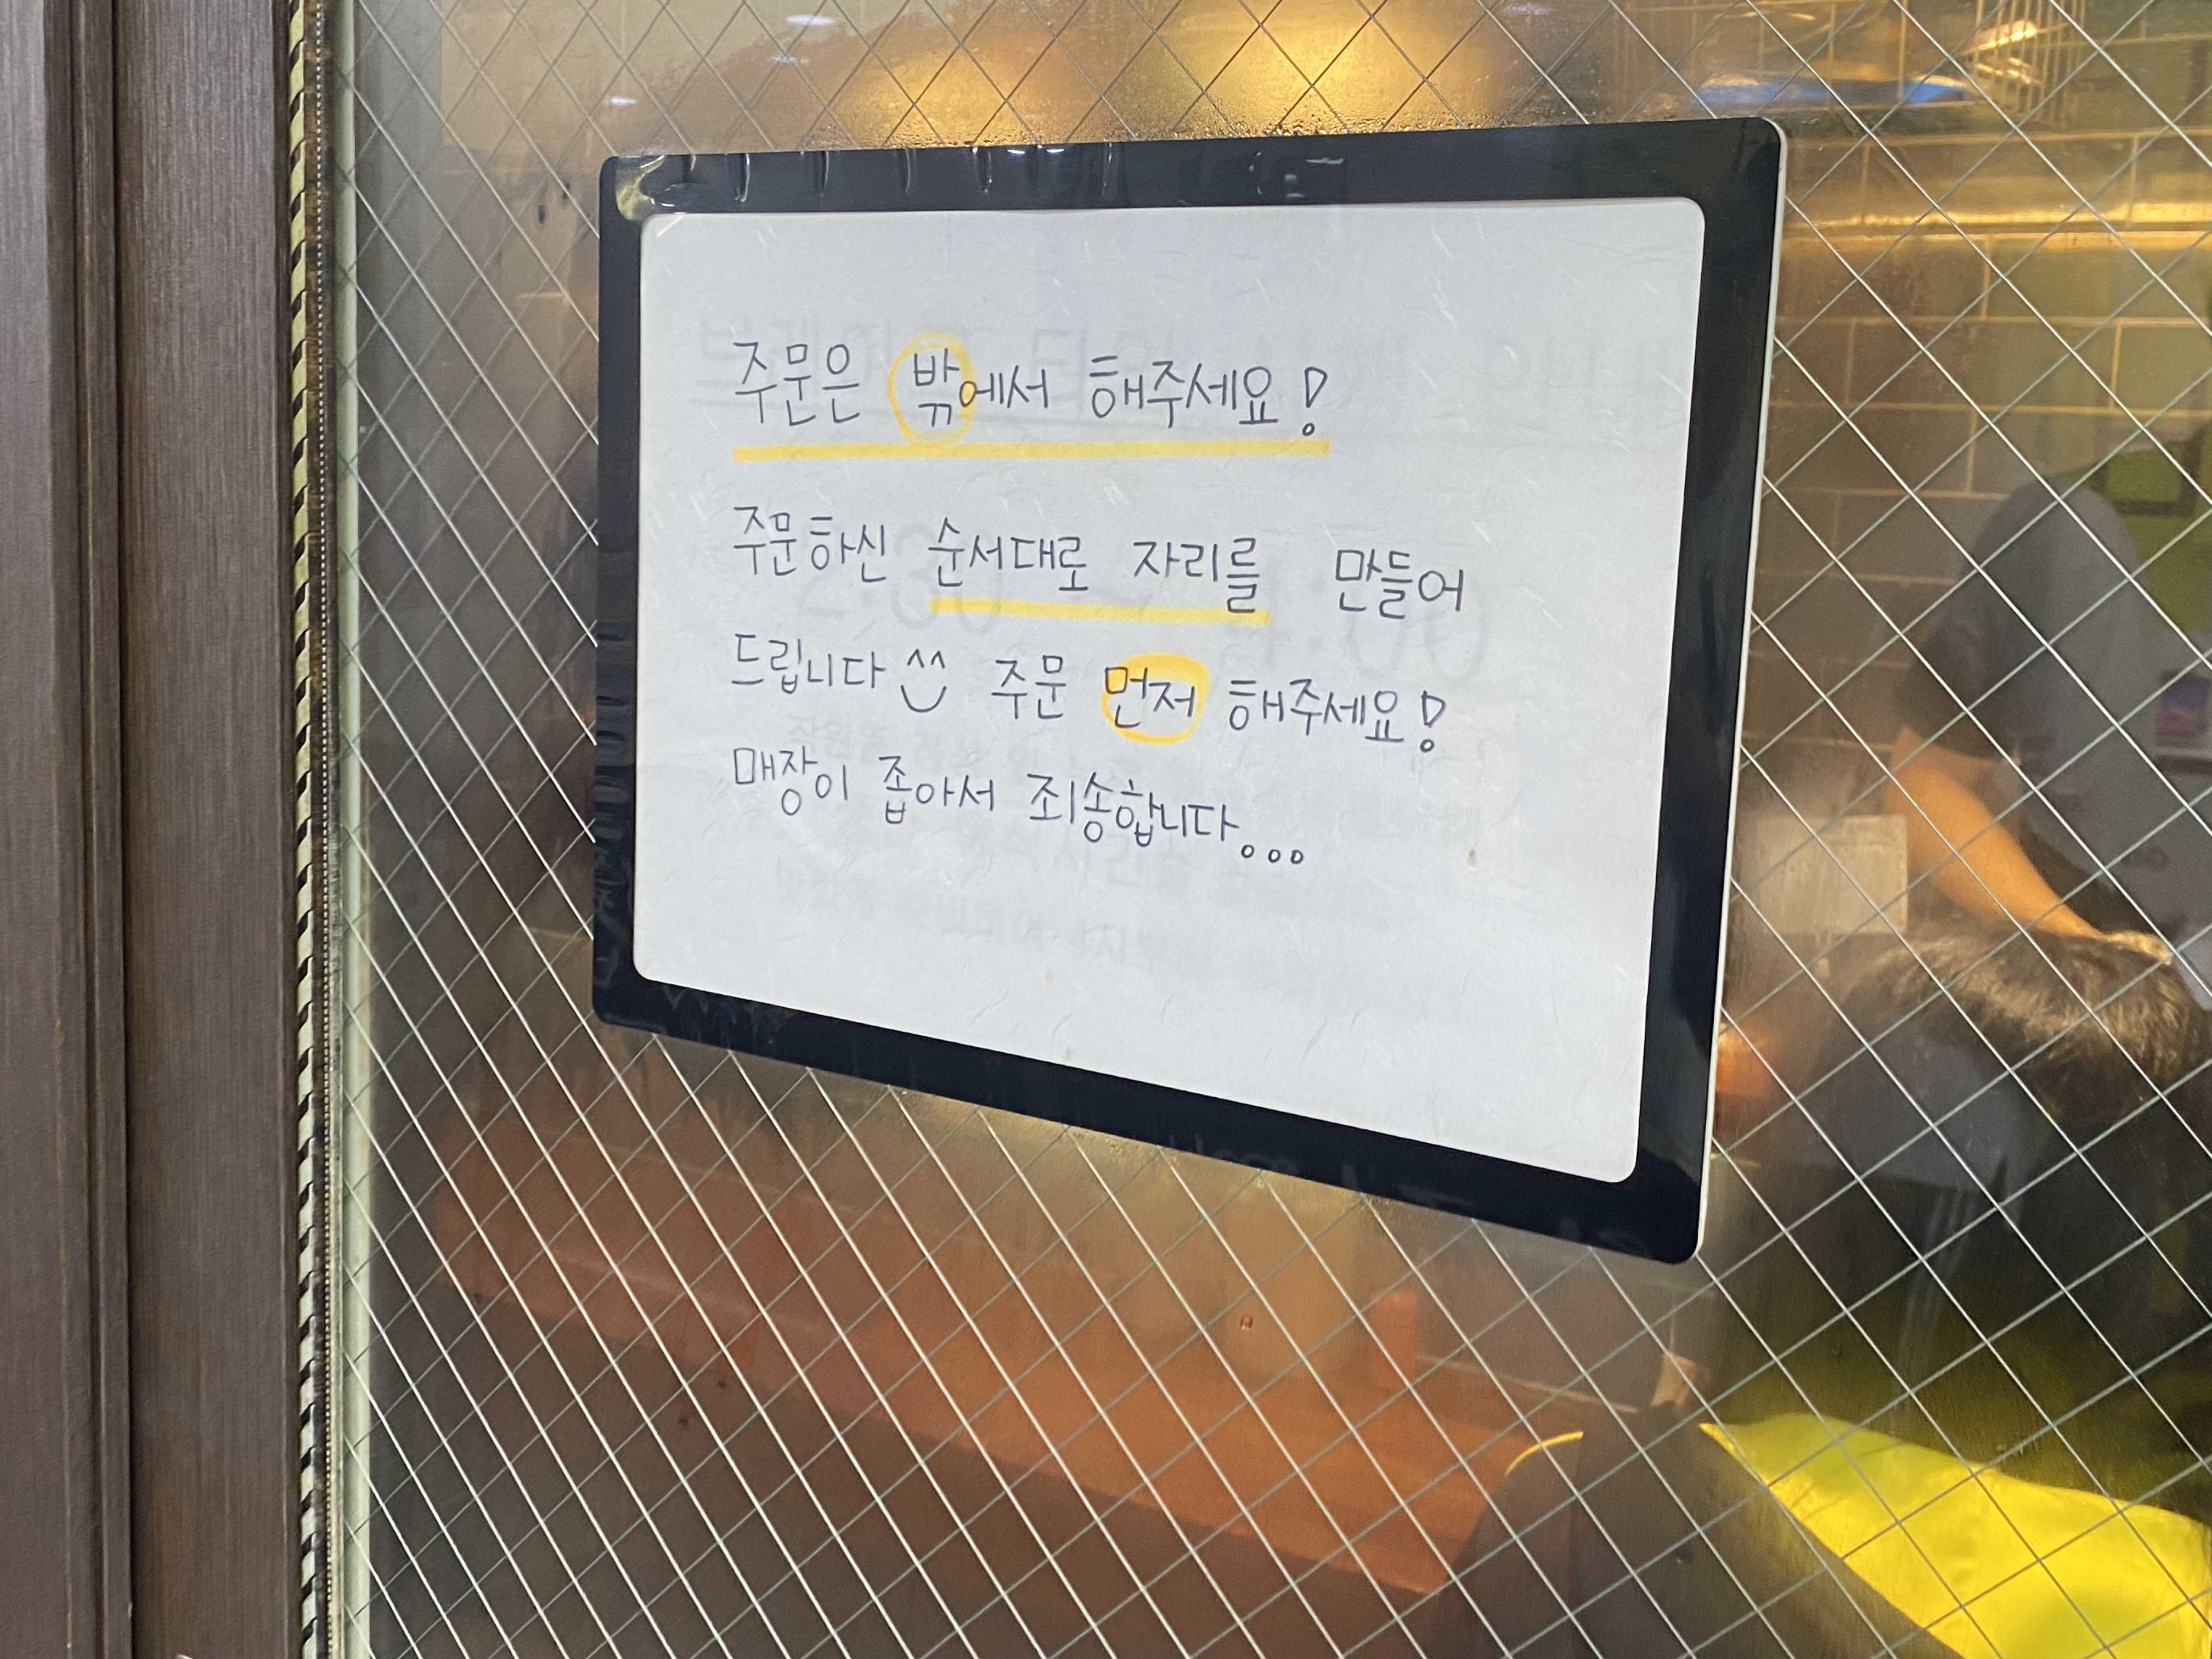 주문은 밖에서 해주세요!
주문하신 순서대로 자리를 만들어
드립니다 ^^ 주문 먼저 해주세요!
매장이 좁아서 죄송합니다...